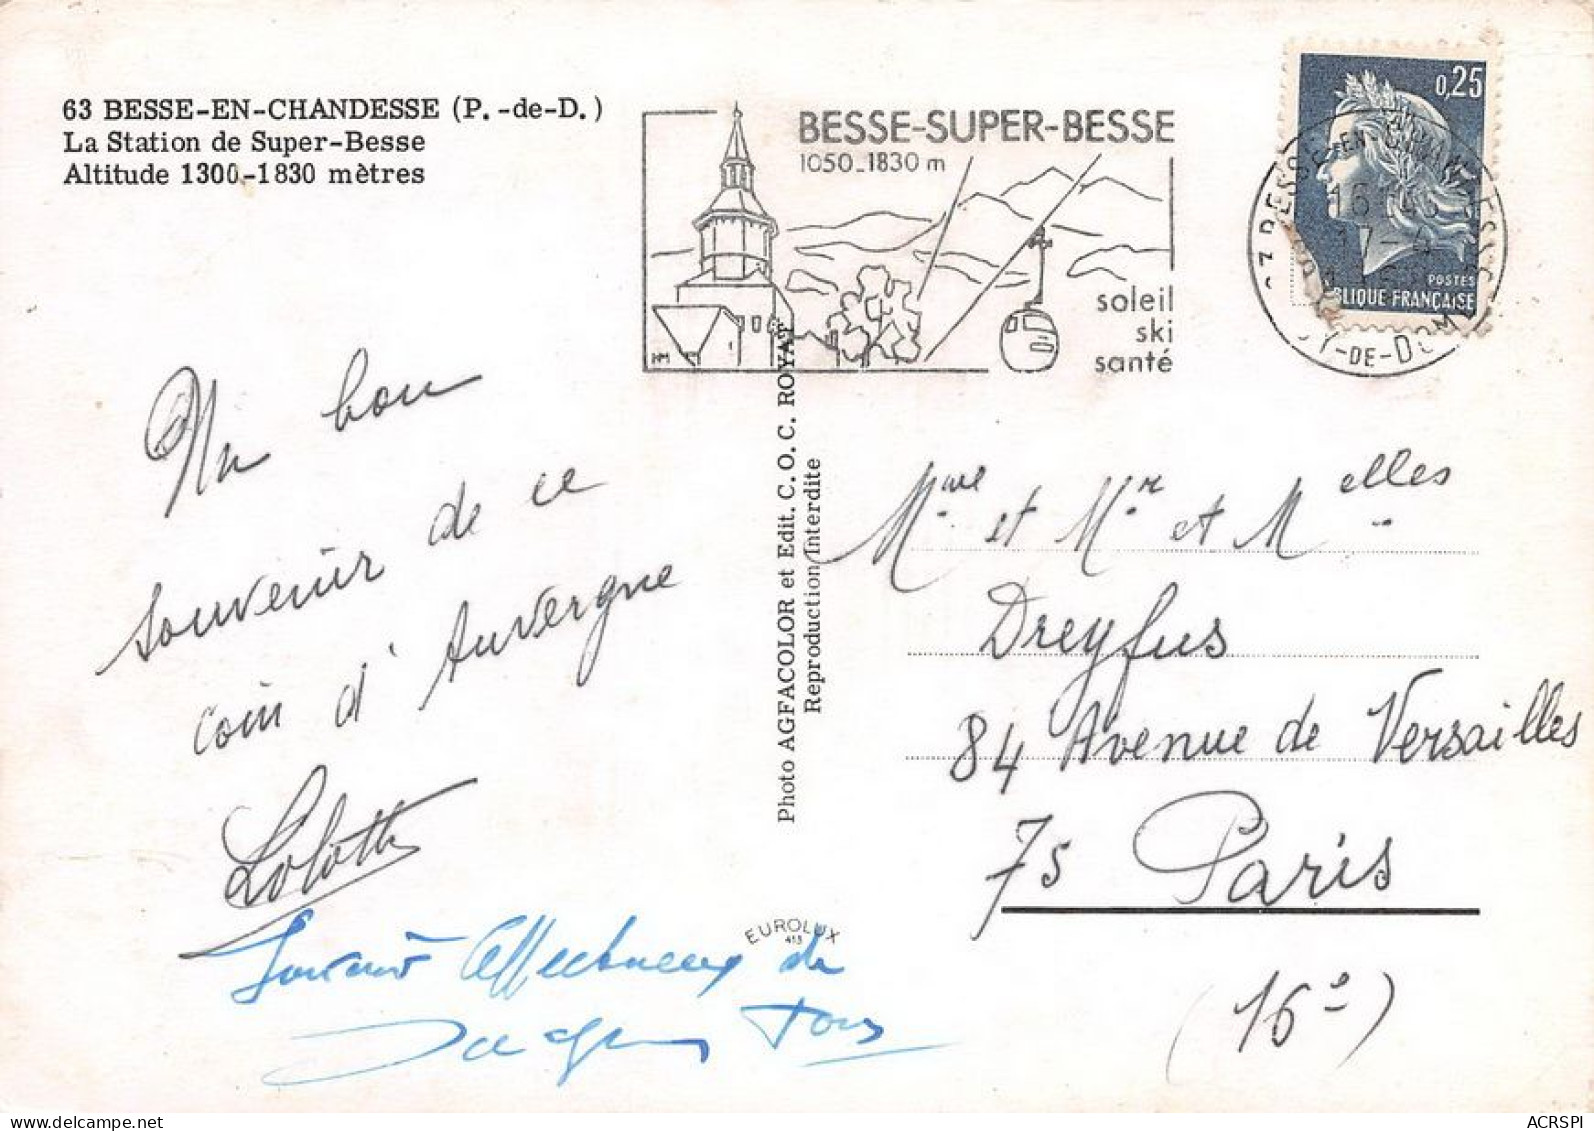 63 BESSE-EN-CHANDESSE (P.-de-D.)
La Station de Super-Besse
Altitude 1300-1830 mètres
BESSE-SUPER-BESSE
1050-1830 m
soleil
ski
santé
HM
0,25
POSTES
BLIQUE FRANÇAISE
BESSE-EN-CHAND
17-4
-DE-DOM
Un bon
souvenir de ce
coin d'Auvergne
Lolotte
Souvenir affectueux de
Jacques
Photo AGFACOLOR et Edit. C. O. C. ROYAT
Reproduction Interdite
EUROLUX
413
Mme et Mr et Melles
Dreyfus
84 Avenue de Versailles
75 Paris
(16e)
ACRSPI